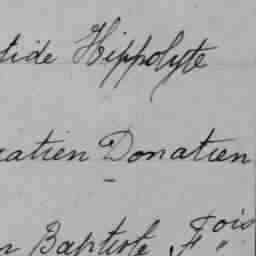 tide Hippolyte
atien Donatien
n Baptiste Fois